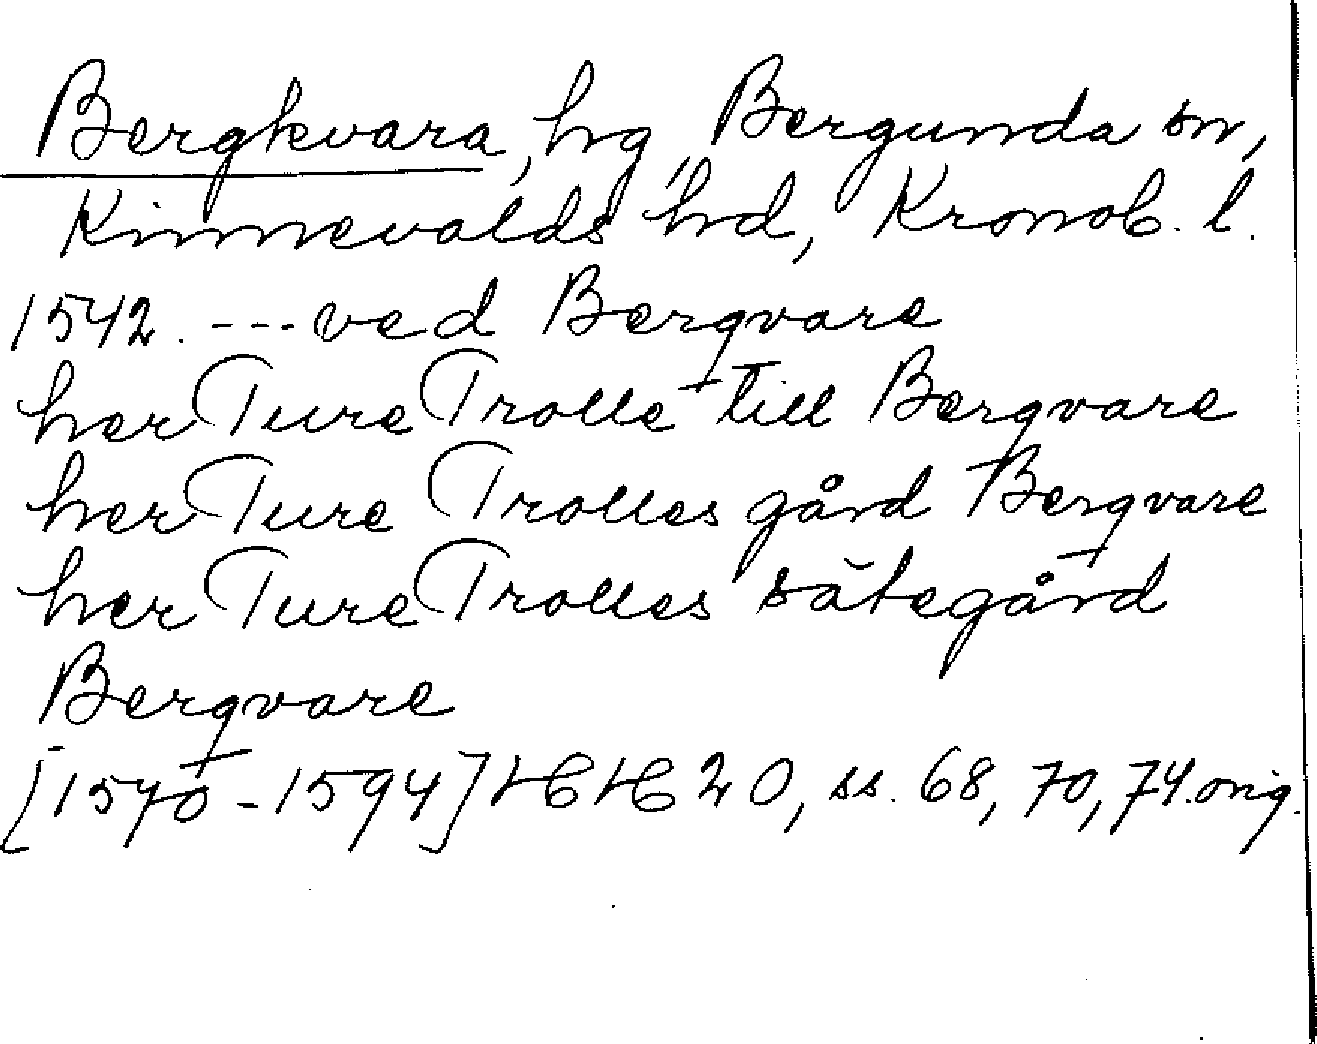 Bergkvara, hg, Bergunda sn,
Kinnevalds hd, Kronob. l.
1542. --- ved Bergqvare
her Ture Trolle till Bergqvare
her Ture Trolles gård Bergqvare
her Ture Trolles sätegård
Bergqvare
[1570-1594] HH 20, ss. 68, 70, 74. orig.